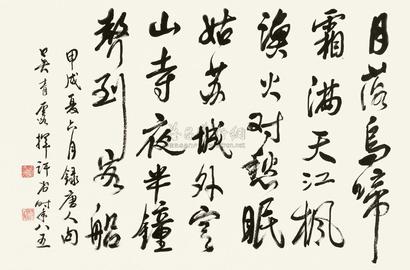 月落乌啼
霜满天江枫
渔火对愁眠
姑苏城外寒
山寺夜半钟
声到客船
甲戌夏六月录唐人句
吴青霞挥汗书时年八五